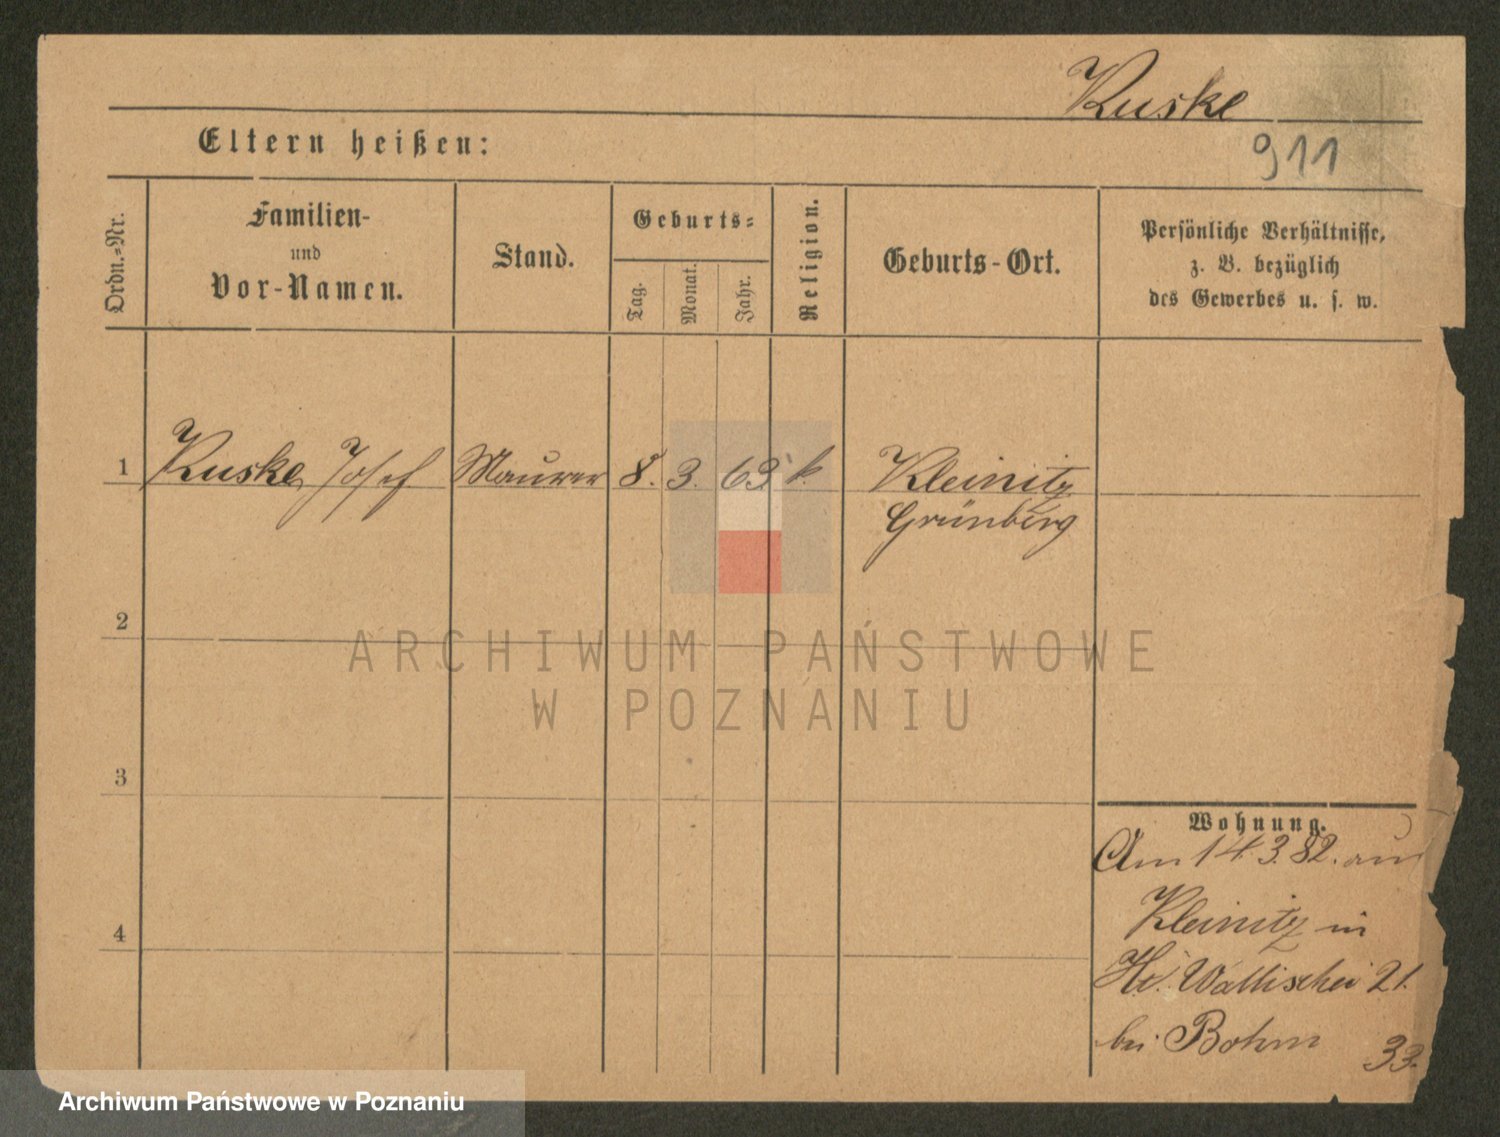 Kuske
911
Eltern heißen:
Ordn.-Nr.
Familien-
und
Vor-Namen.
Stand.
Geburts-
Tag.
Monat.
Jahr.
Religion.
Geburts-Ort.
Persönliche Verhältnisse,
z. B. bezüglich
des Gewerbes u. s. w.
1 Kuske, Josef Maurer 8. 3. 63 k. Kleinitz
Grünberg
2
ARCHIWUM PAŃSTWOWE
W POZNANIU
3
Wohnung.
Am 14.3.82. aus
Kleinitz in
Wallischei 21.
4
bei Bohm 33.
Archiwum Państwowe w Poznaniu